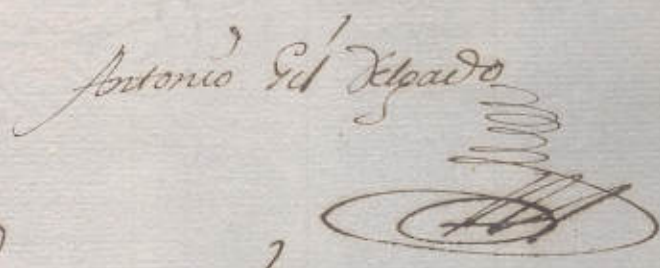 Antonio Gil Delgado